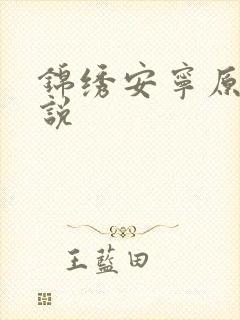 錦绣安寧原
說
王藍田